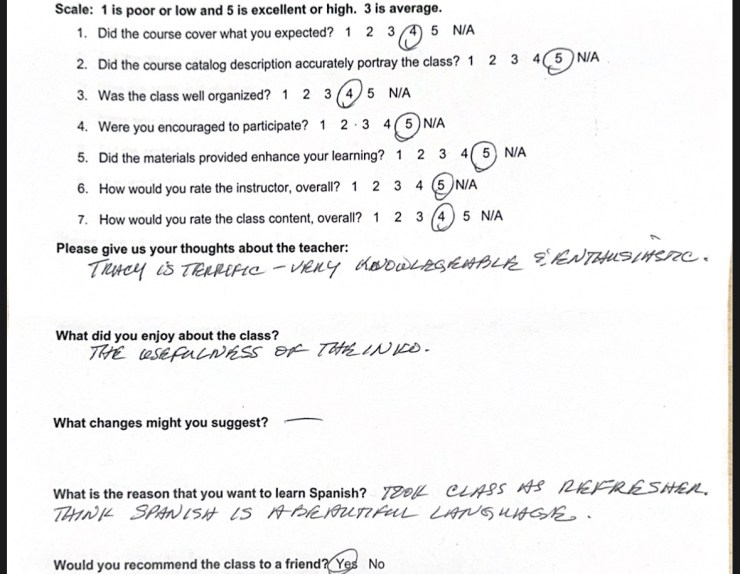 Scale: 1 is poor or low and 5 is excellent or high. 3 is average.
1. Did the course cover what you expected? 1 2 3 4 5 N/A
2. Did the course catalog description accurately portray the class? 1 2 3 4 5 N/A
3. Was the class well organized? 1 2 3 4 5 N/A
4. Were you encouraged to participate? 1 2 3 4 5 N/A
5. Did the materials provided enhance your learning? 1 2 3 4 5 N/A
6. How would you rate the instructor, overall? 1 2 3 4 5 N/A
7. How would you rate the class content, overall? 1 2 3 4 5 N/A
Please give us your thoughts about the teacher:
TRACY IS TERRIFIC - VERY KNOWLEGEABLE & ENTHUSIASTIC.
What did you enjoy about the class?
THE USEFULNESS OF THE INFO.
What changes might you suggest? —
What is the reason that you want to learn Spanish? TOOK CLASS AS REFRESHER.
THINK SPANISH IS A BEAUTIFUL LANGUAGE.
Would you recommend the class to a friend? Yes No